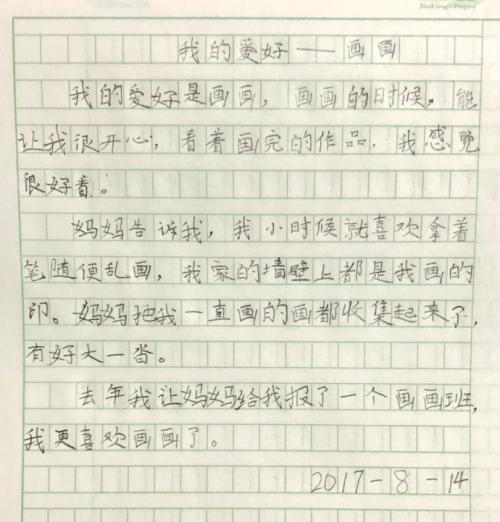 JinLing-Paper
我的爱好——画画
我的爱好是画画，画画的时候，能
让我很开心，看着画完的作品，我感觉
很好看。
妈妈告诉我，我小时候就喜欢拿着
笔随便乱画，我家的墙壁上都是我画的
印。妈妈把我一直画的画都收集起来了，
有好大一沓。
去年我让妈妈给我报了一个画画班，
我更喜欢画画了。
2017-8-14